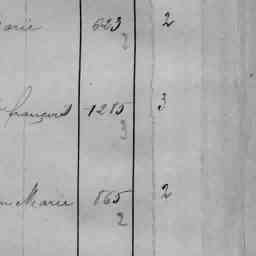 623 2
2
françois 1215 3
3
Marie 865 2
2